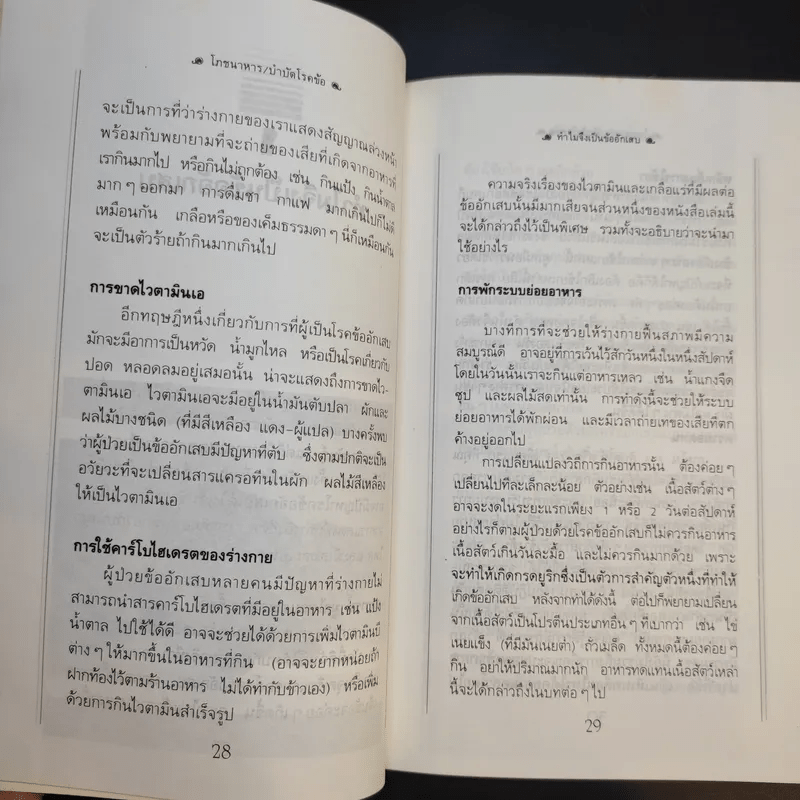 โภชนาหาร/บำบัดโรคข้อ
จะเป็นการที่ว่าร่างกายของเราแสดงสัญญาณล่วงหน้า
พร้อมกับพยายามที่จะถ่ายของเสียที่เกิดจากอาหารที่
เรากินมากไป หรือกินไม่ถูกต้อง เช่น กินแป้ง กินน้ำตาล
มากๆออกมา การดื่มชา กาแฟ มากเกินไปก็ไม่ดี
เหมือนกัน เกลือหรือของเค็มธรรมดาๆนี่ก็เหมือนกัน
จะเป็นตัวร้ายถ้ากินมากเกินไป
การขาดไวตามินเอ
อีกทฤษฎีหนึ่งเกี่ยวกับการที่ผู้เป็นโรคข้ออักเสบ
มักจะมีอาการเป็นหวัด น้ำมูกไหล หรือเป็นโรคเกี่ยวกับ
ปอด หลอดลมอยู่เสมอนั้น น่าจะแสดงถึงการขาดไว-
ตามินเอ ไวตามินเอจะมีอยู่ในน้ำมันตับปลา ผักและ
ผลไม้บางชนิด (ที่มีสีเหลือง แดง-ผู้แปล) บางครั้งพบ
ว่าผู้ป่วยเป็นข้ออักเสบมีปัญหาที่ตับ ซึ่งตามปกติจะเป็น
อวัยวะที่จะเปลี่ยนสารแครอทีนในผัก ผลไม้สีเหลือง
ให้เป็นไวตามินเอ
การใช้คาร์โบไฮเดรตของร่างกาย
ผู้ป่วยข้ออักเสบหลายคนมีปัญหาที่ร่างกายไม่
สามารถนำสารคาร์โบไฮเดรตที่มีอยู่ในอาหาร เช่น แป้ง
น้ำตาล ไปใช้ได้ดี อาจจะช่วยได้ด้วยการเพิ่มไวตามินบี
ต่างๆให้มากขึ้นในอาหารที่กิน (อาจจะยากหน่อยถ้า
ฝากท้องไว้ตามร้านอาหาร ไม่ได้ทำกับข้าวเอง) หรือเพิ่ม
ด้วยการกินไวตามินสำเร็จรูป
28
ทำไมจึงเป็นข้ออักเสบ
ความจริงเรื่องของไวตามินและเกลือแร่ที่มีผลต่อ
ข้ออักเสบนั้นมีมากเสียจนส่วนหนึ่งของหนังสือเล่มนี้
จะได้กล่าวถึงไว้เป็นพิเศษ รวมทั้งจะอธิบายว่าจะนำมา
ใช้อย่างไร
การพักระบบย่อยอาหาร
บางทีการที่จะช่วยให้ร่างกายฟื้นสภาพมีความ
สมบูรณ์ดี อาจอยู่ที่การเว้นไว้สักวันหนึ่งในหนึ่งสัปดาห์
โดยในวันนั้นเราจะกินแต่อาหารเหลว เช่น น้ำแกงจืด
ซุป และผลไม้สดเท่านั้น การทำดังนี้จะช่วยให้ระบบ
ย่อยอาหารได้พักผ่อน และมีเวลาถ่ายเทของเสียที่ตก
ค้างอยู่ออกไป
การเปลี่ยนแปลงวิถีการกินอาหารนั้น ต้องค่อยๆ
เปลี่ยนไปทีละเล็กละน้อย ตัวอย่างเช่น เนื้อสัตว์ต่างๆ
อาจจะงดในระยะแรกเพียง 1 หรือ 2 วันต่อสัปดาห์
อย่างไรก็ตามผู้ป่วยด้วยโรคข้ออักเสบก็ไม่ควรกินอาหาร
เนื้อสัตว์เกินวันละมื้อ และไม่ควรกินมากด้วย เพราะ
จะทำให้เกิดกรดยูริกซึ่งเป็นตัวการสำคัญตัวหนึ่งที่ทำให้
เกิดข้ออักเสบ หลังจากทำได้ดังนี้ ต่อไปก็พยายามเปลี่ยน
จากเนื้อสัตว์เป็นโปรตีนประเภทอื่นๆที่เบากว่า เช่น ไข่
เนยแข็ง (ที่มีมันเนยต่ำ) ถั่วเมล็ด ทั้งหมดนี้ต้องค่อยๆ
กิน อย่าให้ปริมาณมากนัก อาหารทดแทนเนื้อสัตว์เหล่า
นี้จะได้กล่าวถึงในบทต่อๆไป
29